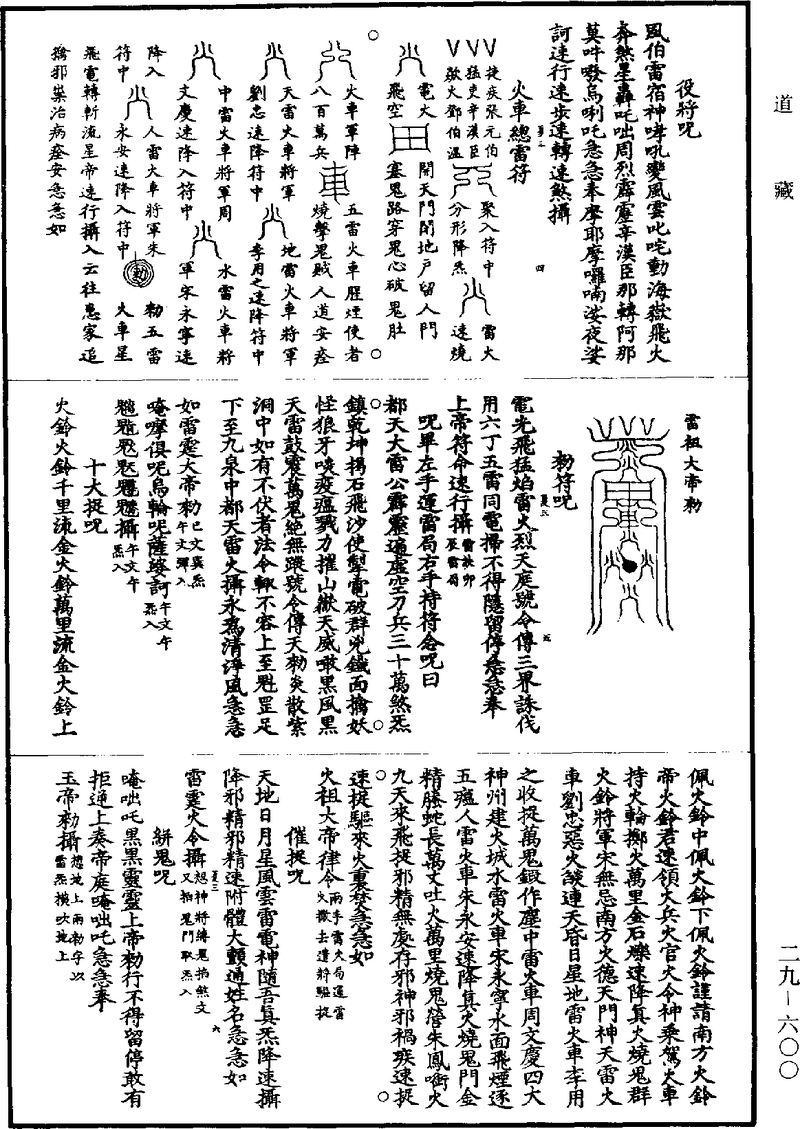 道藏
役將呪
風伯雷宿神哮吼變風雲叱咤動海嶽飛火
奔煞星轟吒咄周烈霹靂辛漢臣那轉阿那
莫吽啜烏唎吒急急奉摩耶摩囉喃娑夜娑
訶速行速步速轉速煞攝
火車總雷符
捷疾張元伯
猛吏辛漢臣
歘火鄧伯溫
聚入符中
分形降炁
雷火
速燒
電火
飛空
開天門閉地戶留人門
塞鬼路穿鬼心破鬼肚
火車軍陣
八百萬兵
五雷火車腥煙使者
燒擊鬼賊人道安痊
天雷火車將軍
劉忠速降符中
地雷火車將軍
李用之速降符中
中雷火車將軍周
文慶速降入符中
水雷火車將
軍宋永寧速
降入
符中
人雷火車將軍朱
永安速降入符中
勑
勑五雷
火車星
飛電轉斬流星帝速行攝入云往患家追
擒邪祟治病痊安急急如
雷祖大帝勑
勑符呪
電光飛猛焰雷火烈天庭號令傳三界誅伐
用六丁五雷同電掃不得隱留停急急奉
上帝符命速行攝
呪畢左手運雷局右手持符念呪曰
都天大雷公霹靂遍虛空刀兵三十萬煞炁
鎮乾坤揚石飛沙使掣電破群兇鐵面擒妖
怪狼牙啖疫瘟戮力摧山嶽天威噉黑風黑
天雷鼓震萬鬼絕無蹤號令傳天勑炎散紫
洞中如有不伏者法令輒不容上至魁罡足
下至九泉中都天雷火攝永為清淨風急急
如雷霆大帝勑
唵㗻俱呪烏輪呢薩臵訶
攝
十大捉呪
火鈴火鈴千里流金火鈴萬里流金火鈴上
佩火鈴中佩火鈴下佩火鈴謹請南方火鈴
帝火鈴君速領大兵火官火令神乘駕火車
持火輪擲火萬里金石爍速降真火燒鬼群
火鈴將軍宋無忌南方火德天門神天雷火
車劉忠惡火燄連天昏日星地雷火車李用
之收捉萬鬼鍛作塵中雷火車周文慶四大
神州建火城水雷火車宋永寧水面飛煙逐
五瘟人雷火車朱永安速降真火燒鬼門金
精騰蛇長萬丈吐火萬里燒鬼營朱鳳㘅火
九天來飛捉邪精無處存邪神邪禍疾速捉
速捉驅來火裏焚急急如
火祖大帝律令 兩手雷火局運雷火撒去遣將驅捉
催捉呪
天地日月星風雲雷電神隨吾真炁降速攝
降邪精邪精速附體大顯通姓名急急如
雷霆火令攝
絣鬼呪
唵咄吒黑黑靈靈上帝勑行不得留停敢有
拒逆上奏帝庭唵咄吒急急奉
玉帝勑攝
二九—六〇〇